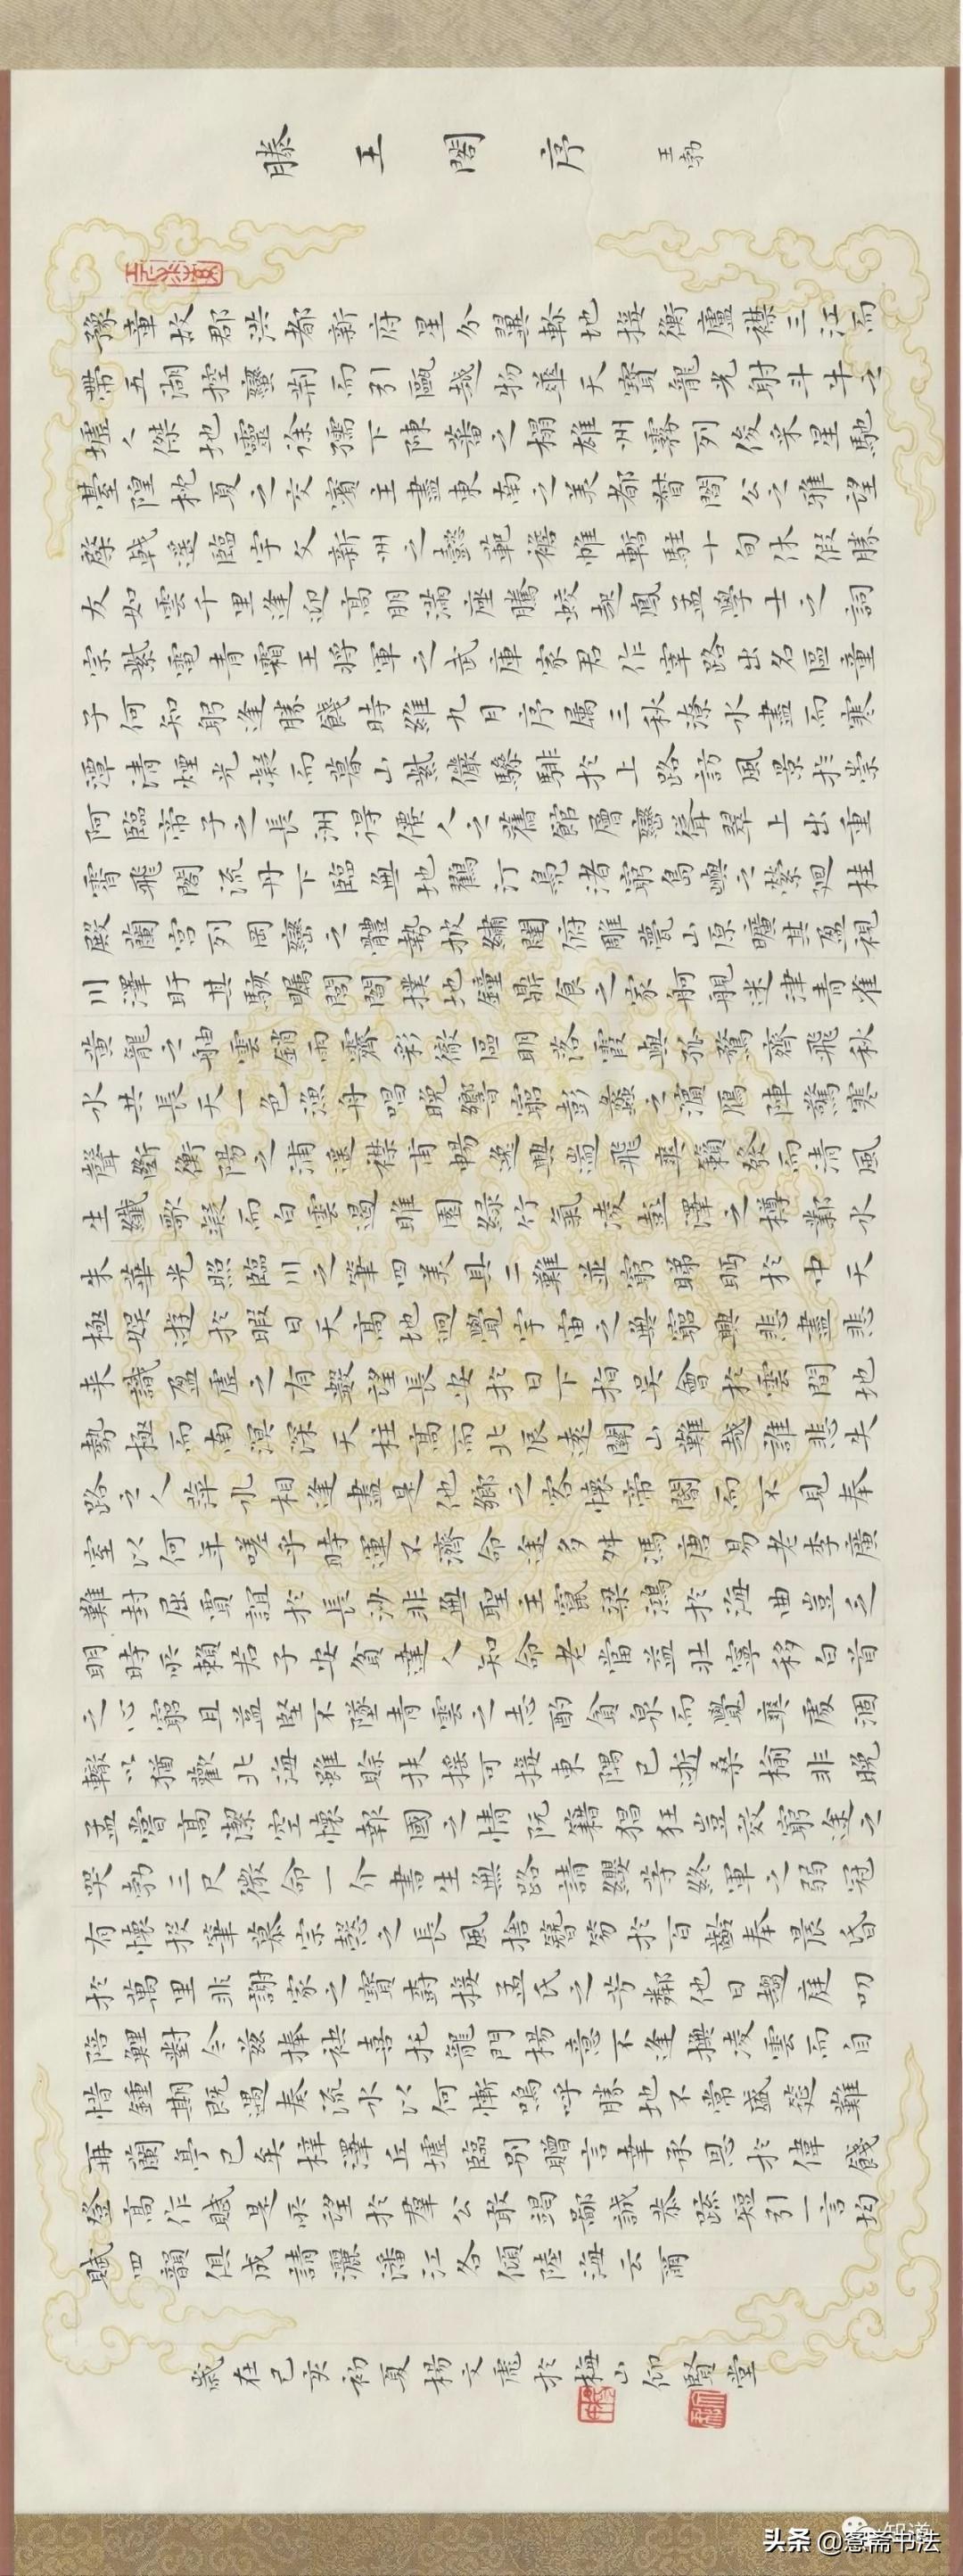 滕王閣序 王勃
豫章故郡洪都新府星分翼軫地接衡廬襟三江而
帶五湖控蠻荊而引甌越物華天寶龍光射斗牛之
墟人傑地靈徐孺下陳蕃之榻雄州霧列俊采星馳
臺隍枕夏之交賓主盡東南之美都督閻公之雅望
棨戟遙臨宇文新州之懿範襜帷暫駐十旬休假勝
友如雲千里逢迎高朋滿座騰蛟起鳳孟學士之詞
宗紫電青霜王將軍之武庫家君作宰路出名區童
子何知躬逢勝餞時維九月序屬三秋潦水盡而寒
潭清煙光凝而暮山紫儼驂騑於上路訪風景於崇
阿臨帝子之長洲得僊人之舊館層巒聳翠上出重
霄飛閣流丹下臨無地鶴汀鳧渚窮島嶼之縈廻桂
殿蘭宮列岡巒之體勢披繡闥俯雕甍山原曠其盈視
川澤盱其駭矚閭閻撲地鐘鼎食之家舸艦迷津青雀
黃龍之舳雲銷雨霽彩徹區明落霞與孤鶩齊飛秋
水共長天一色漁舟唱晚響窮彭蠡之濱雁陣驚寒
聲斷衡陽之浦遙襟甫暢逸興遄飛爽籟發而清風
生纖歌凝而白雲遏睢園綠竹氣凌彭澤之樽鄴水
朱華光照臨川之筆四美具二難並窮睇眄於中天
極娛遊於暇日天高地迥覺宇宙之無窮興悲盡悲
來識盈虛之有數望長安於日下指吳會於雲間地
勢極而南溟深天柱高而北辰遠關山難越誰悲失
路之人萍水相逢盡是他鄉之客懷帝閽而不見奉
室以何年嗟乎時運不濟命途多舛馮唐易老李廣
難封屈賈誼於長沙非無聖主竄梁鴻於海曲豈乏
明時所賴君子安貧達人知命老當益壯寧移白首
之心窮且益堅不墜青雲之志酌貪泉而覺爽處涸
轍以猶歡北海雖賒扶搖可接東隅已逝桑榆非晚
孟嘗高潔空懷報國之情阮籍猖狂豈效窮途之
哭勃三尺微命一介書生無路請纓等終軍之弱冠
有懷投筆慕宗慤之長風捨簪笏於百齡奉晨昏
於萬里非謝家之寶樹接孟氏之芳鄰他日趨庭叨
陪鯉對今茲捧袂喜托龍門楊意不逢撫凌雲而自
惜鍾期既遇奏流水以何慚嗚呼勝地不常盛筵難
再蘭亭已矣梓澤丘墟臨別贈言幸承恩於偉餞
登高作賦是所望於羣公敢竭鄙誠恭疏短引一言均
賦四韻俱成請灑潘江各傾陸海云爾
歲在己亥初夏楊文虎於梅山仰賢堂
知道
头条 @愙斋书法